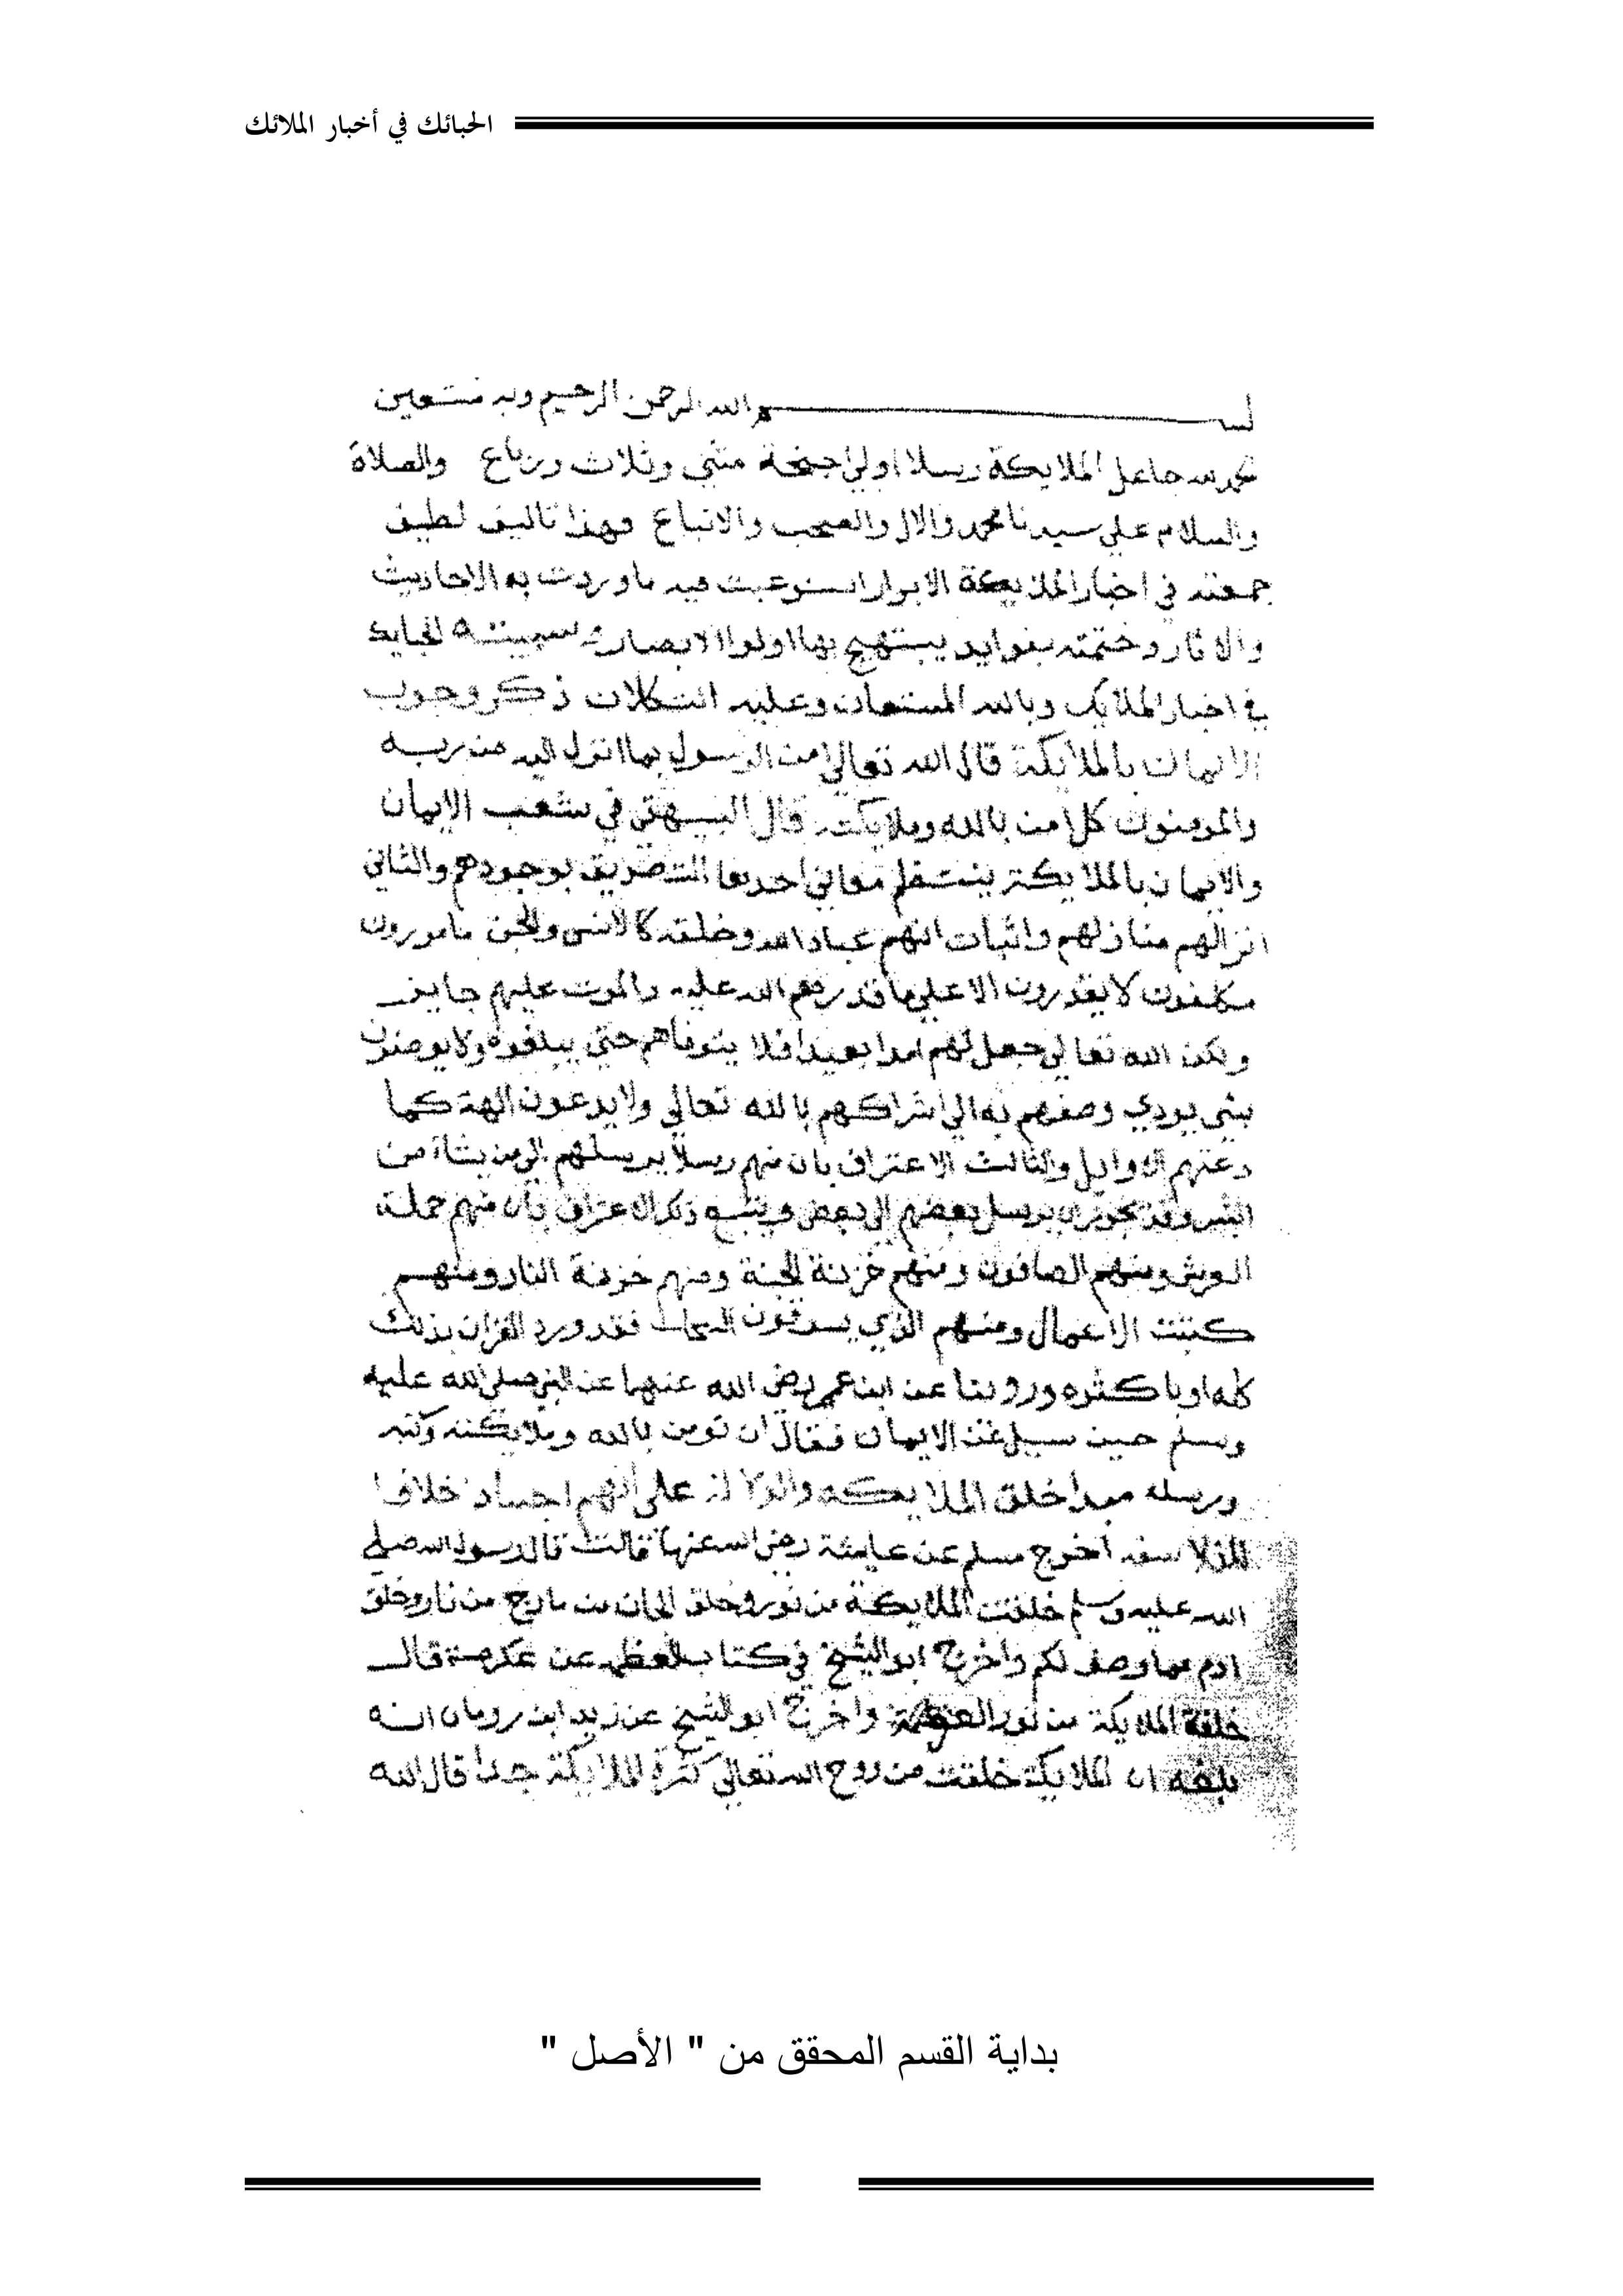 الحبائك في أخبار الملائك
بسم الله الرحمن الرحيم وبه نستعين
الحمد لله جاعل الملايكة رسلا اولي اجنحة مثني وثلاث ورباع والصلاة
والسلام علي سيدنا محمد والال والصحب والاتباع وهذا تاليف لطيف
جمعته في اخبار الملايكة الابرار استوعبت فيه ما وردت به الاحاديث
والاثار وختمته بفوايد يبتهج بها اولوا الابصار سميته الحبايك
في اخبار الملايك وبالله المستعان وعليه التكلان ذكر وجوب
الايمان بالملايكة قال الله تعالي امن الرسول بما انزل اليه من ربه
والمومنون كل امن بالله وملايكته قال البيهقي في شعب الايمان
والايمان بالملايكة ينتظم معاني احدها التصديق بوجودهم والثاني
انزالهم منازلهم واثبات انهم عباد الله وخلقه كالانس والجن مامورون
مكلفون لا يقدرون الا علي ما قدرهم الله عليه والموت عليهم جايز
ولكن الله تعالي جعل لهم امدا بعيدا فلا يتوفاهم حتي يبلغوه ولا يوصفون
بشي يودي وصفهم به الي اشراكهم بالله تعالي ولا يدعون الهة كما
دعتهم الاوايل والثالث الاعتراف بان منهم رسلا يرسلهم الي من يشاء من
البشر وقد يجوز ان يرسل بعضهم الي بعض ويتبع ذلك الاعتراف بان منهم حملة
العرش ومنهم الصافون ومنهم خزنة الجنة ومنهم خزنة النار ومنهم
كتبت الاعمال ومنهم الذي يسوقون السحاب فقد ورد القران بذلك
كله او باكثره وروينا عن ابن عمر رضي الله عنهما عن النبي صلي الله عليه
وسلم حين سيل عن الايمان فقال ان تومن بالله وملايكته وكتبه
ورسله مبدا خلق الملايكه والدلالة علي انهم اجساد خلافا
للفلاسفه اخرج مسلم عن عايشة رضي الله عنها قالت قال رسول الله صلي
الله عليه وسلم خلقت الملايكة من نور وخلق الجان من مارج من نار وخلق
ادم مما وصف لكم واخرج ابو الشيخ في كتاب العظمه عن عكرمة قال
خلقة الملايكة من نور العزة واخرج ابو الشيخ عن زيد ابن رومان انه
بلغه ان الملايكة خلقت من روح الله تعالي كثرة الملايكة جدا قال الله
بداية القسم المحقق من " الأصل "